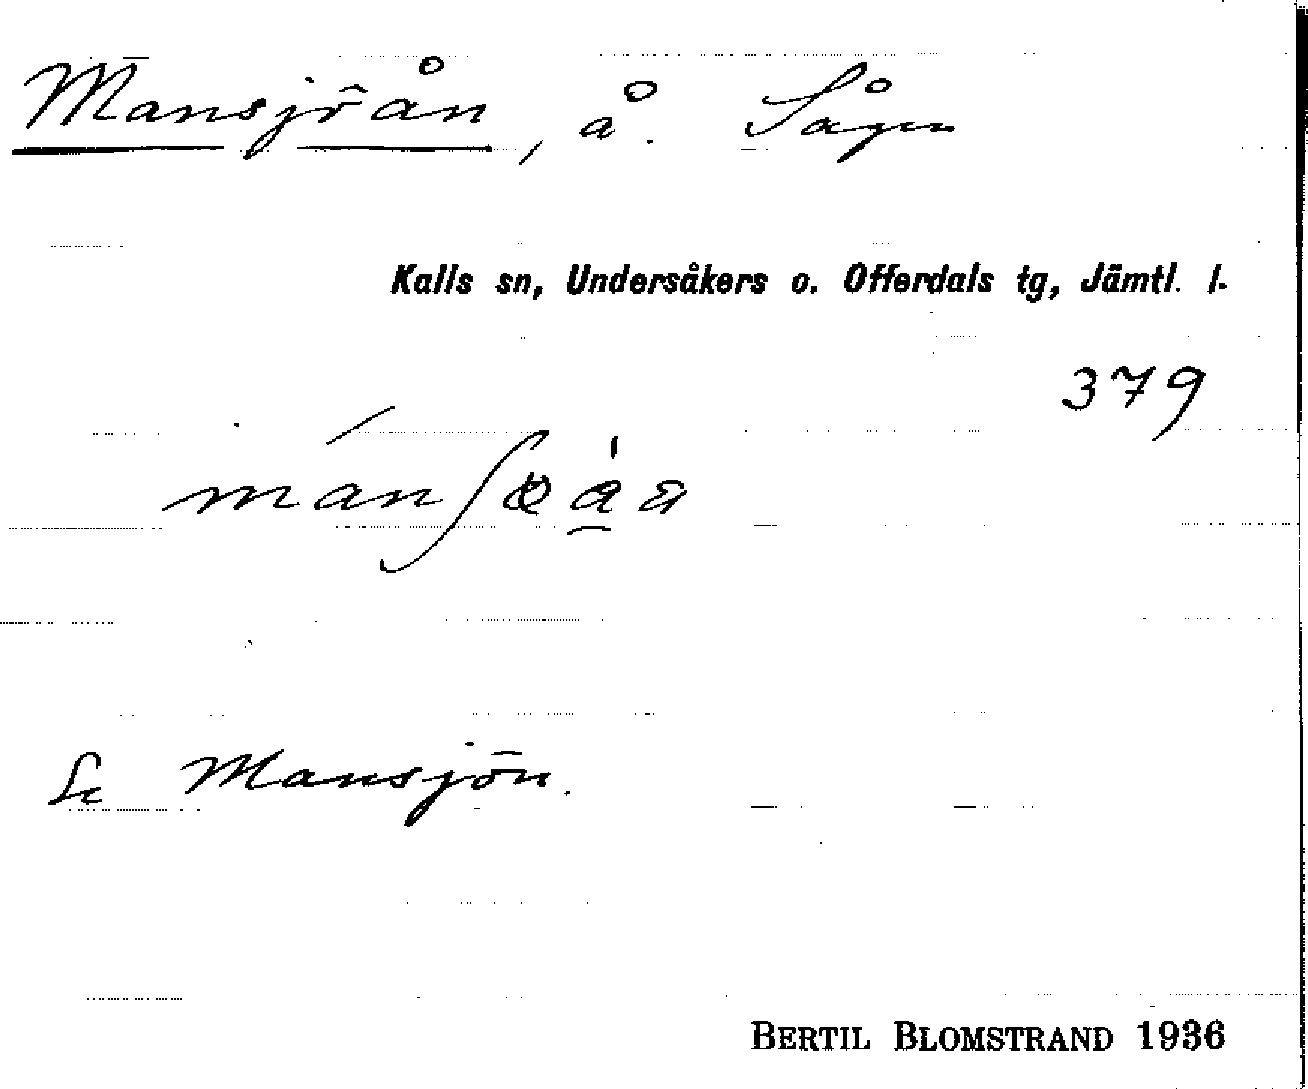 Mansjöån, å. Sågen
Kalls sn, Undersåkers o. Offerdals tg, Jämtl. l.
379
Se Mansjön.
BERTIL BLOMSTRAND 1936